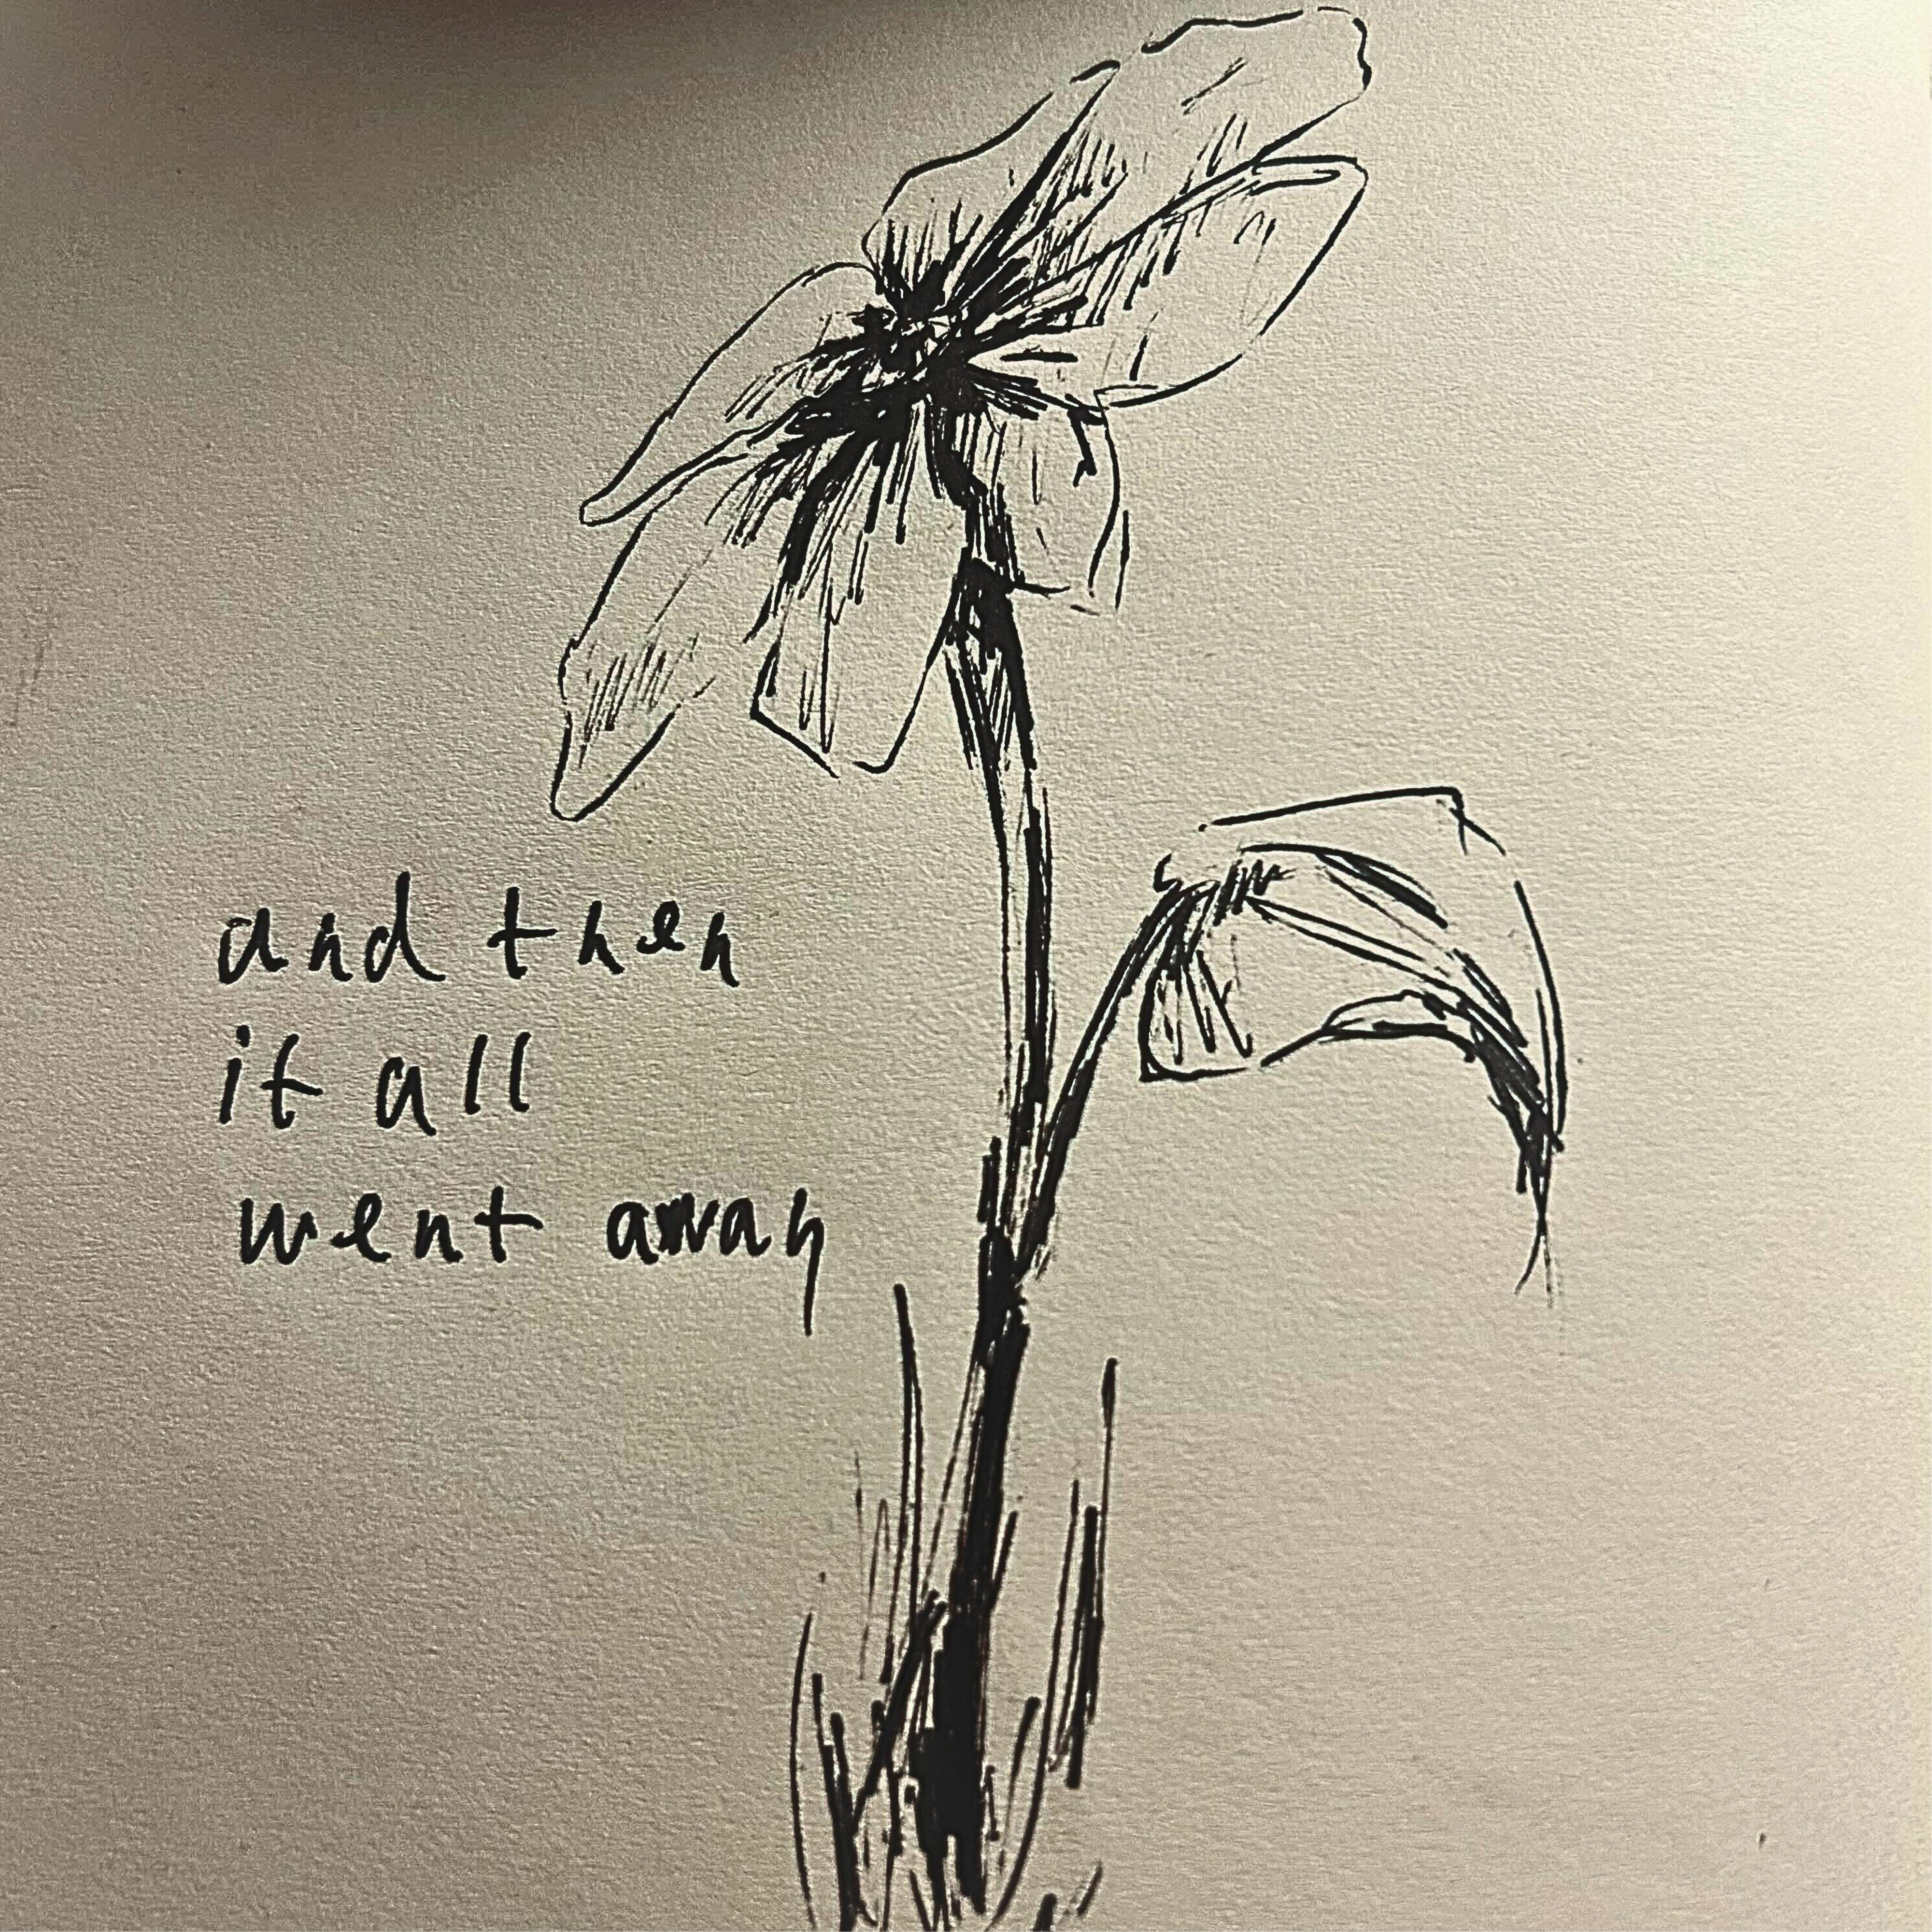 and then
it all
went away